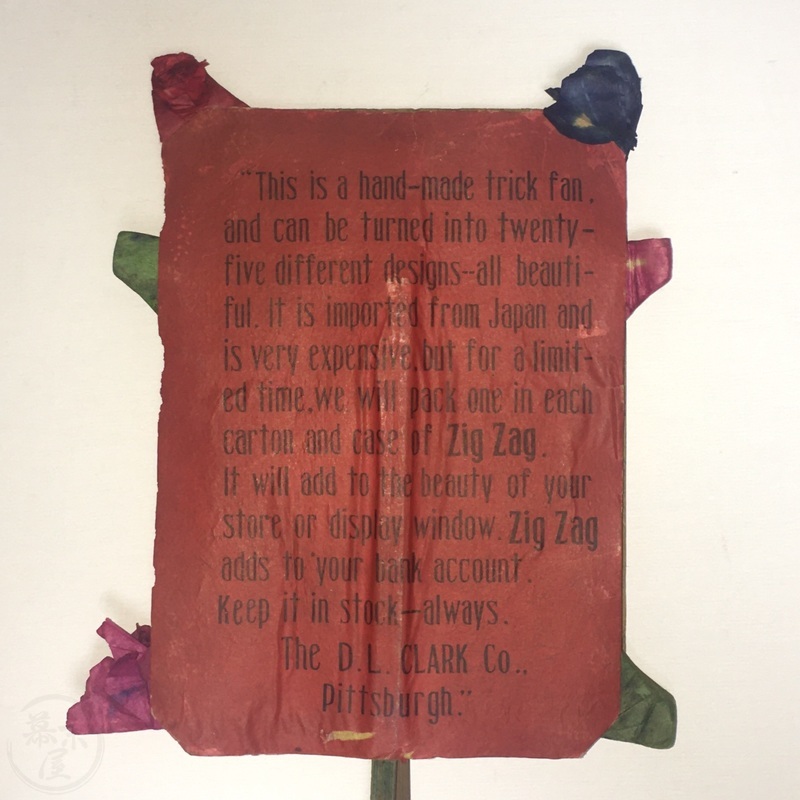 "This is a hand-made trick fan,
and can be turned into twenty-
five different designs--all beauti-
ful. It is imported from Japan and
is very expensive, but for a limit-
ed time, we will pack one in each
carton and case of Zig Zag.
It will add to the beauty of your
store or display window. Zig Zag
adds to your bank account.
Keep it in stock—always.
The D. L. CLARK Co.,
Pittsburgh."